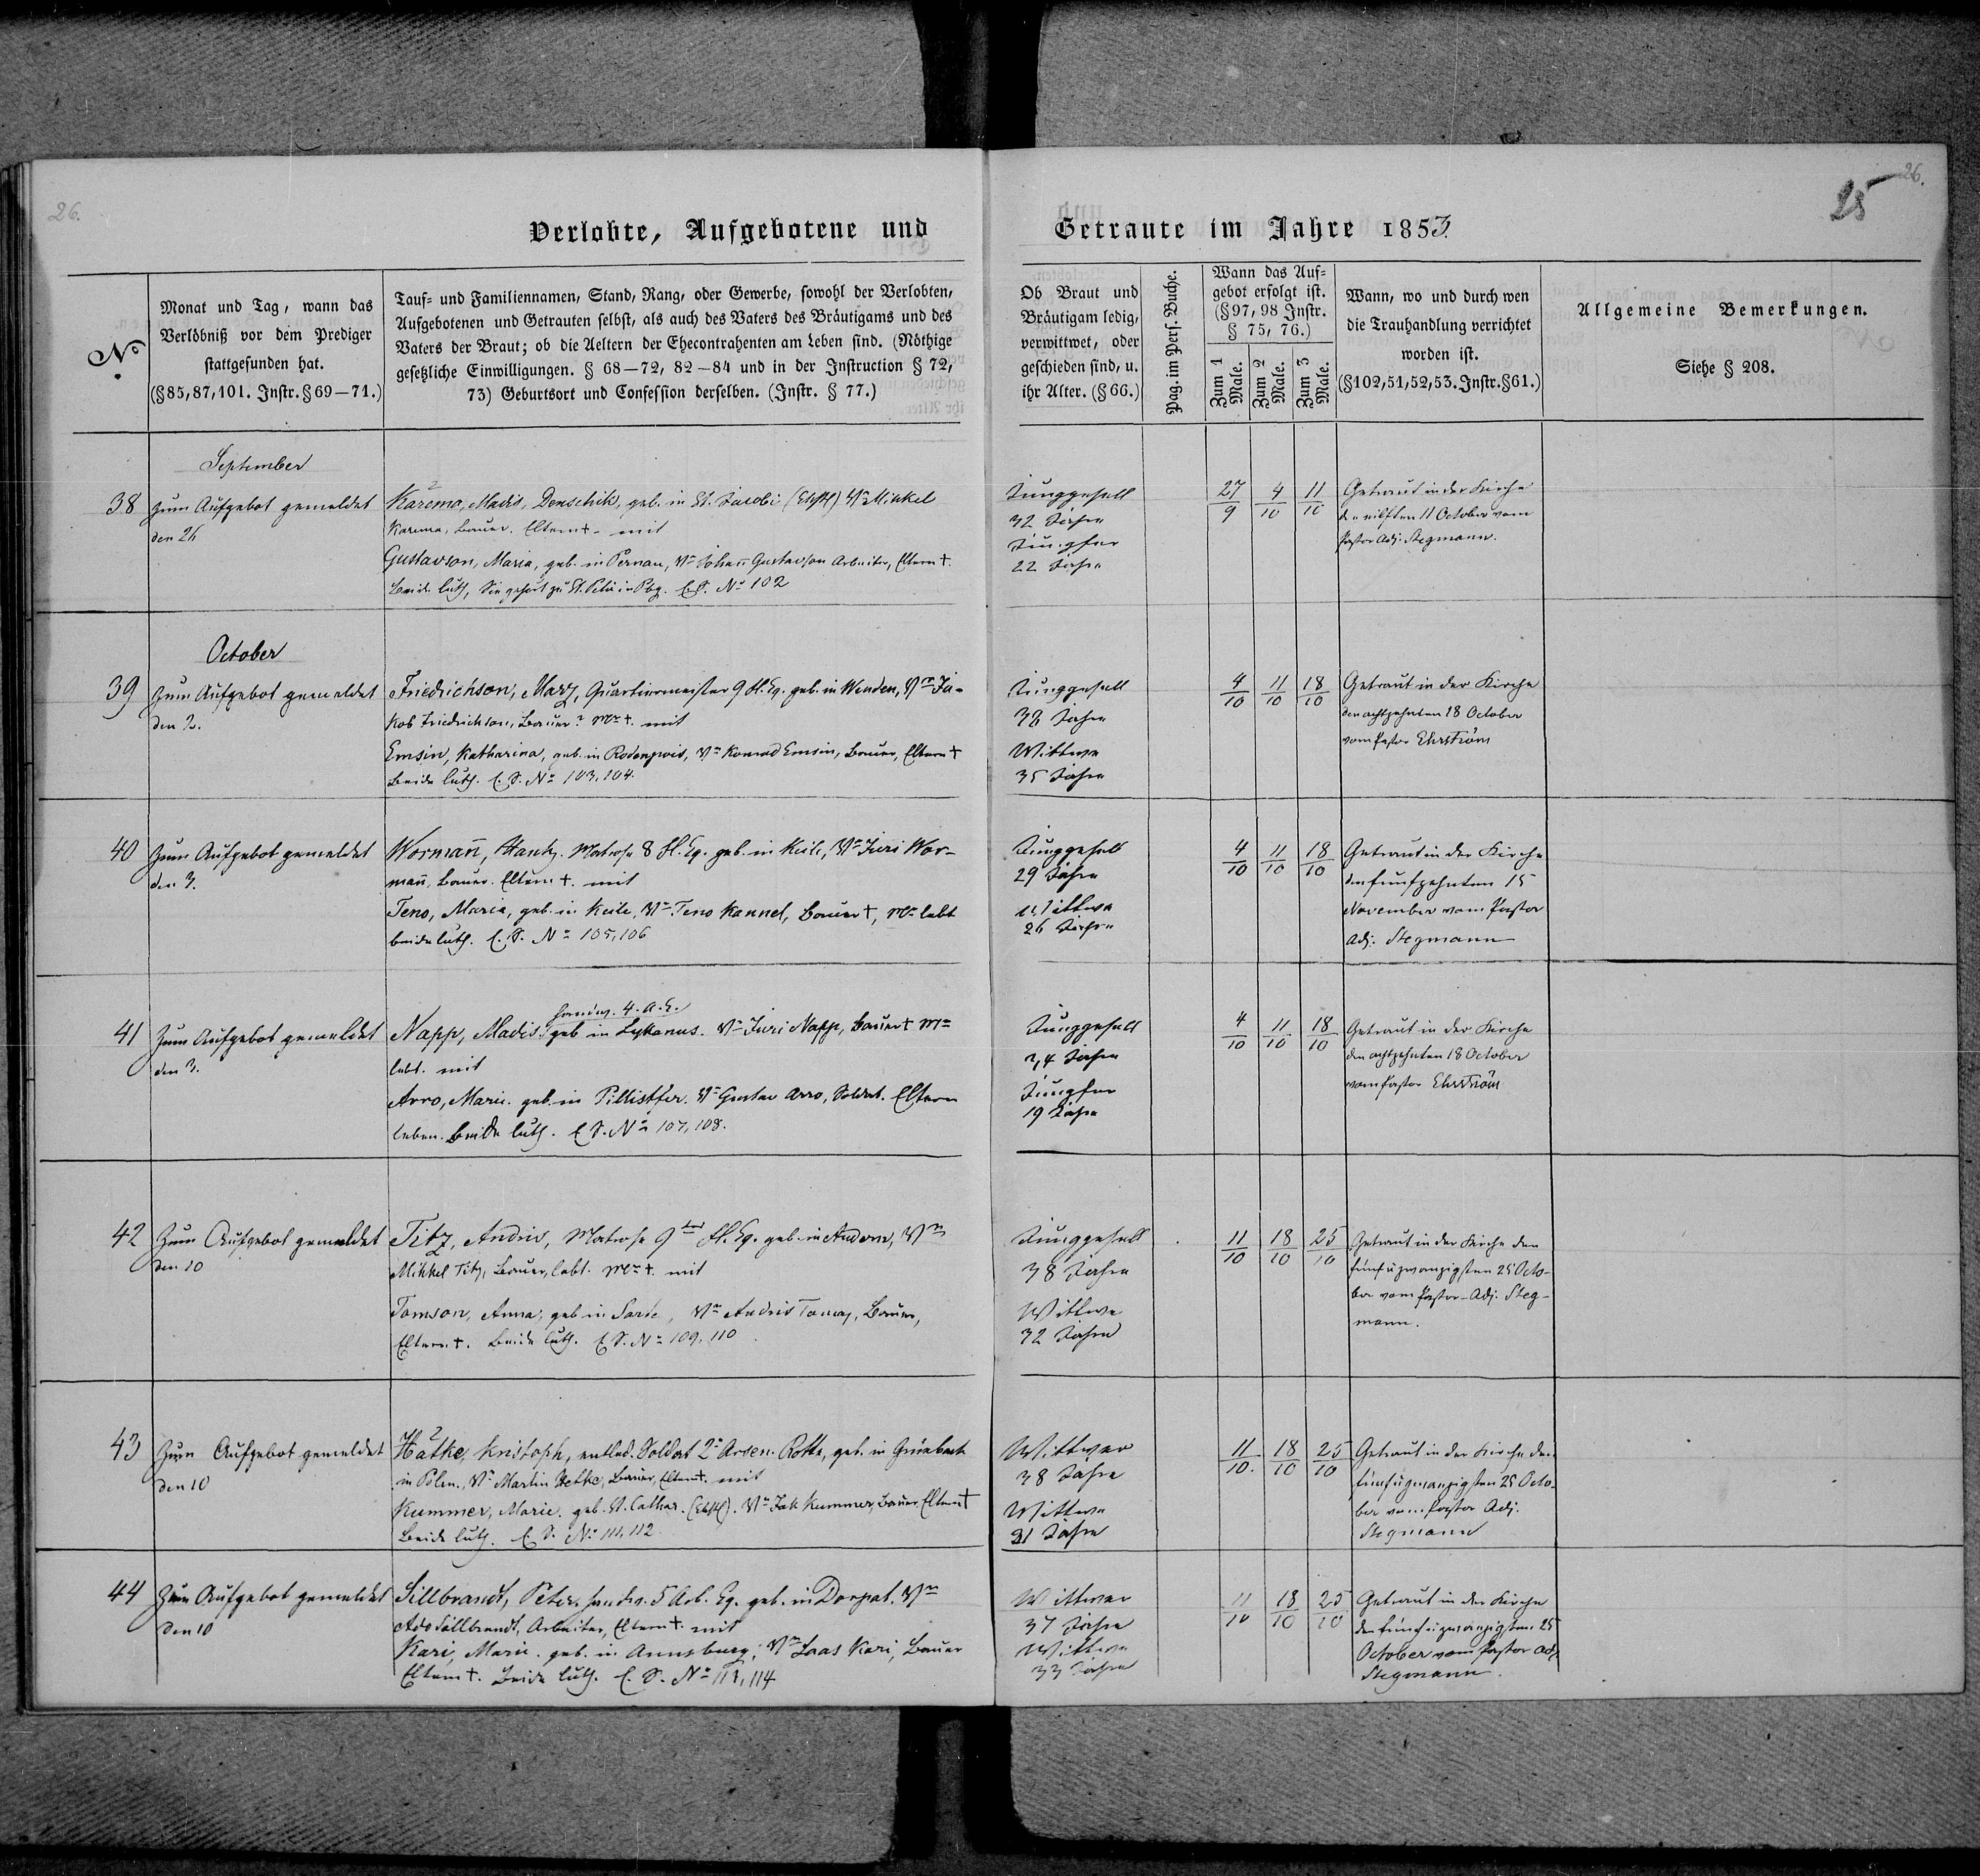 26.
26.
25
Verlobte, Aufgebotene und
Getraute im Jahre 1853.
No
Monat und Tag, wann das
Verlöbniß vor dem Prediger
stattgefunden hat.
(§85,87,101. Instr. §69—71.)
Tauf= und Familiennamen, Stand, Rang, oder Gewerbe, sowohl der Verlobten,
Aufgebotenen und Getrauten selbst, als auch des Vaters des Bräutigams und des
Vaters der Braut; ob die Aeltern der Ehecontrahenten am Leben sind. (Nöthige
gesetzliche Einwilligungen. § 68—72, 82—84 und in der Instruction § 72,
73) Geburtsort und Confession derselben. (Instr. § 77.)
Ob Braut und
Bräutigam ledig,
verwittwet, oder
geschieden sind, u.
ihr Alter. (§66.)
Pag. im Pers. Buche.
Wann das Auf=
gebot erfolgt ist.
(§97, 98 Instr.
§ 75, 76.)
Zum 1 Male.
Zum 2 Male.
Zum 3 Male.
Wann, wo und durch wen
die Trauhandlung verrichtet
worden ist.
(§102,51,52,53. Instr. §61.)
Allgemeine Bemerkungen.
Siehe § 208.
September
38 zum Aufgebot gemeldet
den 26
Karema, Madis, Denschik, geb. in St. Jacobi (Ehstl) Vr Mikkel
Karema, Bauer. Eltern †. mit
Gustavson, Maria, geb. in Pernau, Vr Johan̄ Gustavson Arbeiter, Eltern †.
Beide luth, Sie gehört zu St. Petri in Pbg. E.S. No 102
Junggesell
32 Jahre
Jungfer
22 Jahre
27/9 4/10 11/10
Getraut in der Kirche
den eilften 11 October vom
Pastor Adj. Stegmann.
October
39 zum Aufgebot gemeldet
den 2.
Friedrichson, Marz, Quartiermeister 9 Fl. Eq. geb. in Wenden, Vr Ja-
kob Friedrichson, Bauer? Mr †. mit
Emsin, Katharina, geb. in Rodenpois, Vr Konrad Emsin, Bauer, Eltern †
Beide luth. E. S. No 103, 104.
Junggesell
38 Jahre
Wittwe
35 Jahre
4/10 11/10 18/10
Getraut in der Kirche
den achtzehnten 18 October
vom Pastor Ehrström
40 zum Aufgebot gemeldet
den 3.
Worman̄, Hans, Matrose 8 Fl. Eq. geb. in Keile, Vr Juri Wor-
man̄, Bauer. Eltern †. mit
Teno, Maria, geb. in Keile, Vr Teno Kannel, Bauer †, Mr lebt
beide luth. E. S. No 105, 106
Junggesell
29 Jahre
Wittwe
26 Jahre
4/10 11/10 18/10
Getraut in der Kirche
den funfzehnten 15
November vom Pastor
Adj: Stegmann
41 Zum Aufgebot gemeldet
den 3.
Handw. 4. A. E.
Napp, Madis. geb in Vr Juri Napp, Bauer † Mr
lebt. mit
Arro, Marie. geb. in Pillistfer. Vr Gustav Arro, Soldat. Eltern
leben. Beide luth. E S. No 107, 108.
Junggesell
24 Jahre
Jungfer
19 Jahre
4/10 11/10 18/10
Getraut in der Kirche
den achtzehnten 18 October
vom Pastor Ehrström
42 Zum Aufgebot gemeldet
den 10
Titz, Andris, Matrose 9ter Fl. Eq. geb. in Audern, Vr
Mikkel Titz, Bauer, lebt. Mr †. mit
Tomson, Anna, geb in Vr Andris Bauer,
Eltern †. Beide luth. E S. No 109, 110
Junggesell
38 Jahre
Wittwe
32 Jahre
11/10 18/10 25/10
Getraut in der Kirche den
fünfuzwanzigsten 25 Octo-
ber vom Pastor-Adj. Steg-
mann.
43 Zum Aufgebot gemeldet
den 10
Hätke, Kristoph, entlass. Soldat 2r Arsen. Rotte, geb. in Grünbach
in Polen. Vr Martin Hetke, Bauer, Eltern †. mit
Kummer, Marie. geb. St. Cathar. (Ehstl). Vr Jak Kummer, Bauer Eltern †
Beide luth. E S. No 111, 112.
Wittwer
38 Jahre
Wittwe
31 Jahre
11/10. 18/10 25/10
Getraut in der Kirche den
fünfuzwanzigsten 25 Octo-
ber vom Pastor Adj.
Stegmann
44 Zum Aufgebot gemeldet
den 10
Sillbrandt, Peter. Handw. 5 Arb. Eq. geb. in Dorpat. Vr
Ado Sillbrandt, Arbeiter, Eltern †. mit
Kari, Marie. geb. in Annsburg; Vr Laas Kari, Bauer
Eltern †. Beide luth. E. S. No 113, 114
Wittwer
37 Jahre
Wittwe
33 Jahre
11/10 18/10 25/10
Getraut in der Kirche
den fünfuzwanzigsten 25
October vom Pastor Adj.
Stegmann.